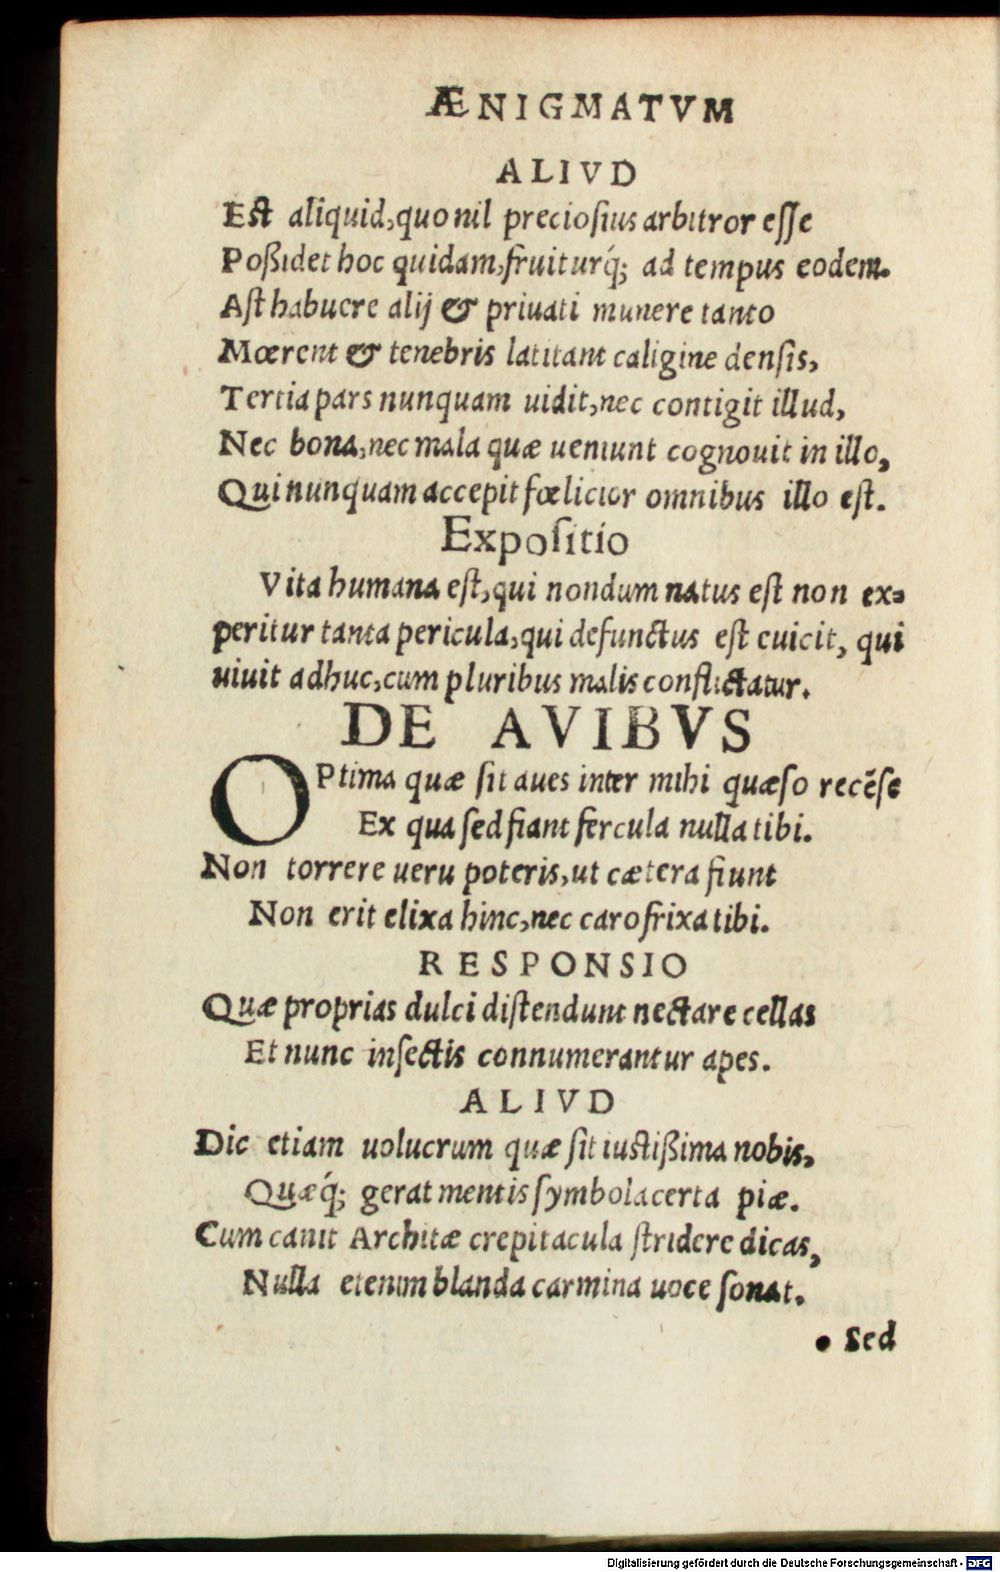 ÆNIGMATVM
ALIVD
Est aliquid, quo nil preciosius arbitror esse
Poßidet hoc quidam, fruiturq́; ad tempus eodem.
Ast habuere alij & priuati munere tanto
Mœrent & tenebris latitant caligine densis,
Tertia pars nunquam uidit, nec contigit illud,
Nec bona, nec mala quæ ueniunt cognouit in illo,
Qui nunquam accepit fœlicior omnibus illo est.
Expositio
Vita humana est, qui nondum natus est non ex-
peritur tanta pericula, qui defunctus est euicit, qui
uiuit adhuc, cum pluribus malis conflictatur.
DE AVIBVS
OPtima quæ sit aues inter mihi quæso recẽse
Ex qua sed fiant fercula nulla tibi.
Non torrere ueru poteris, ut cætera fiunt
Non erit elixa hinc, nec caro frixa tibi.
RESPONSIO
Quæ proprias dulci distendunt nectare cellas
Et nunc insectis connumerantur apes.
ALIVD
Dic etiam uolucrum quæ sit iustißima nobis,
Quæq́; gerat mentis symbola certa piæ.
Cum canit Architæ crepitacula stridere dicas,
Nulla etenim blanda carmina uoce sonat.
Sed
Digitalisierung gefördert durch die Deutsche Forschungsgemeinschaft - DFG